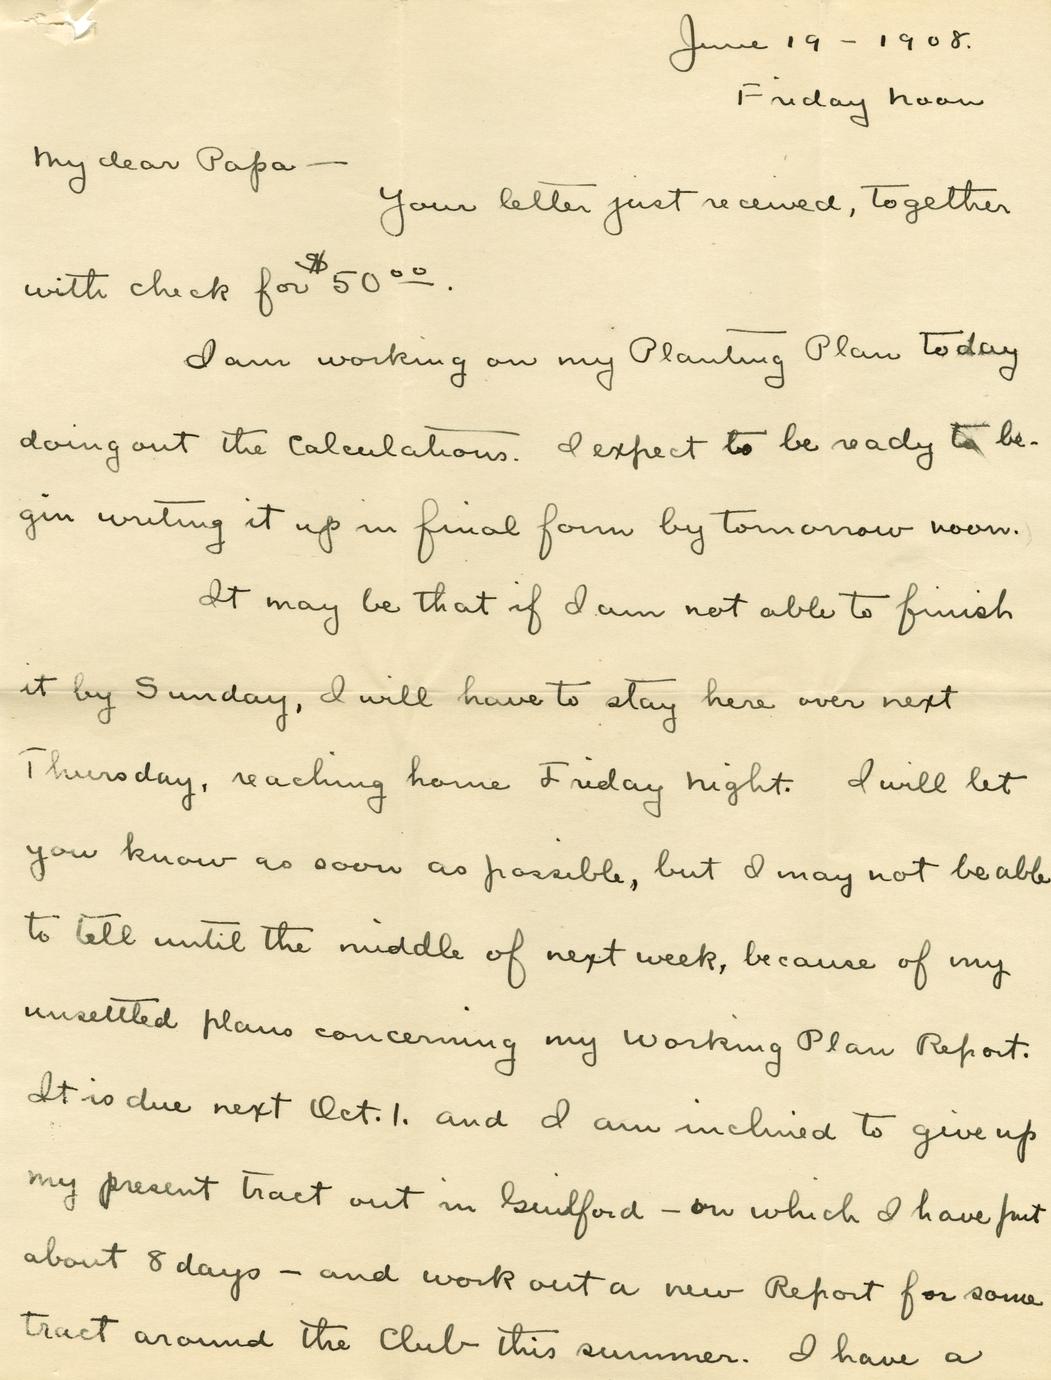 June 19 - 1908.
Friday noon
My dear Papa —
Your letter just received, together
with check for $50 00.
I am working on my Planting Plan today
doing out the calculations. I expect to be ready to be-
gin writing it up in final form by tomorrow noon.
It may be that if I am not able to finish
it by Sunday, I will have to stay here over next
Thursday, reaching home Friday night. I will let
you know as soon as possible, but I may not be able
to tell until the middle of next week, because of my
unsettled plans concerning my Working Plan Report.
It is due next Oct. 1. and I am inclined to give up
my present tract out in Guilford - on which I have put
about 8 days - and work out a new Report for some
tract around the Club this summer. I have a